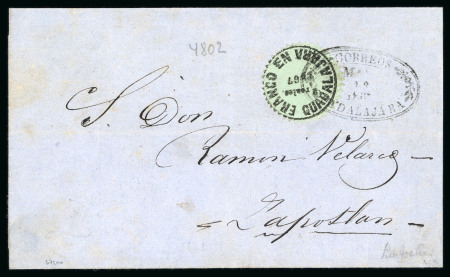 4802
FRANCO EN GUADALAJARA
2 reales
1867
CORREOS
GUADALAJARA
S. Don
Ramon Velasco
Zapotlan